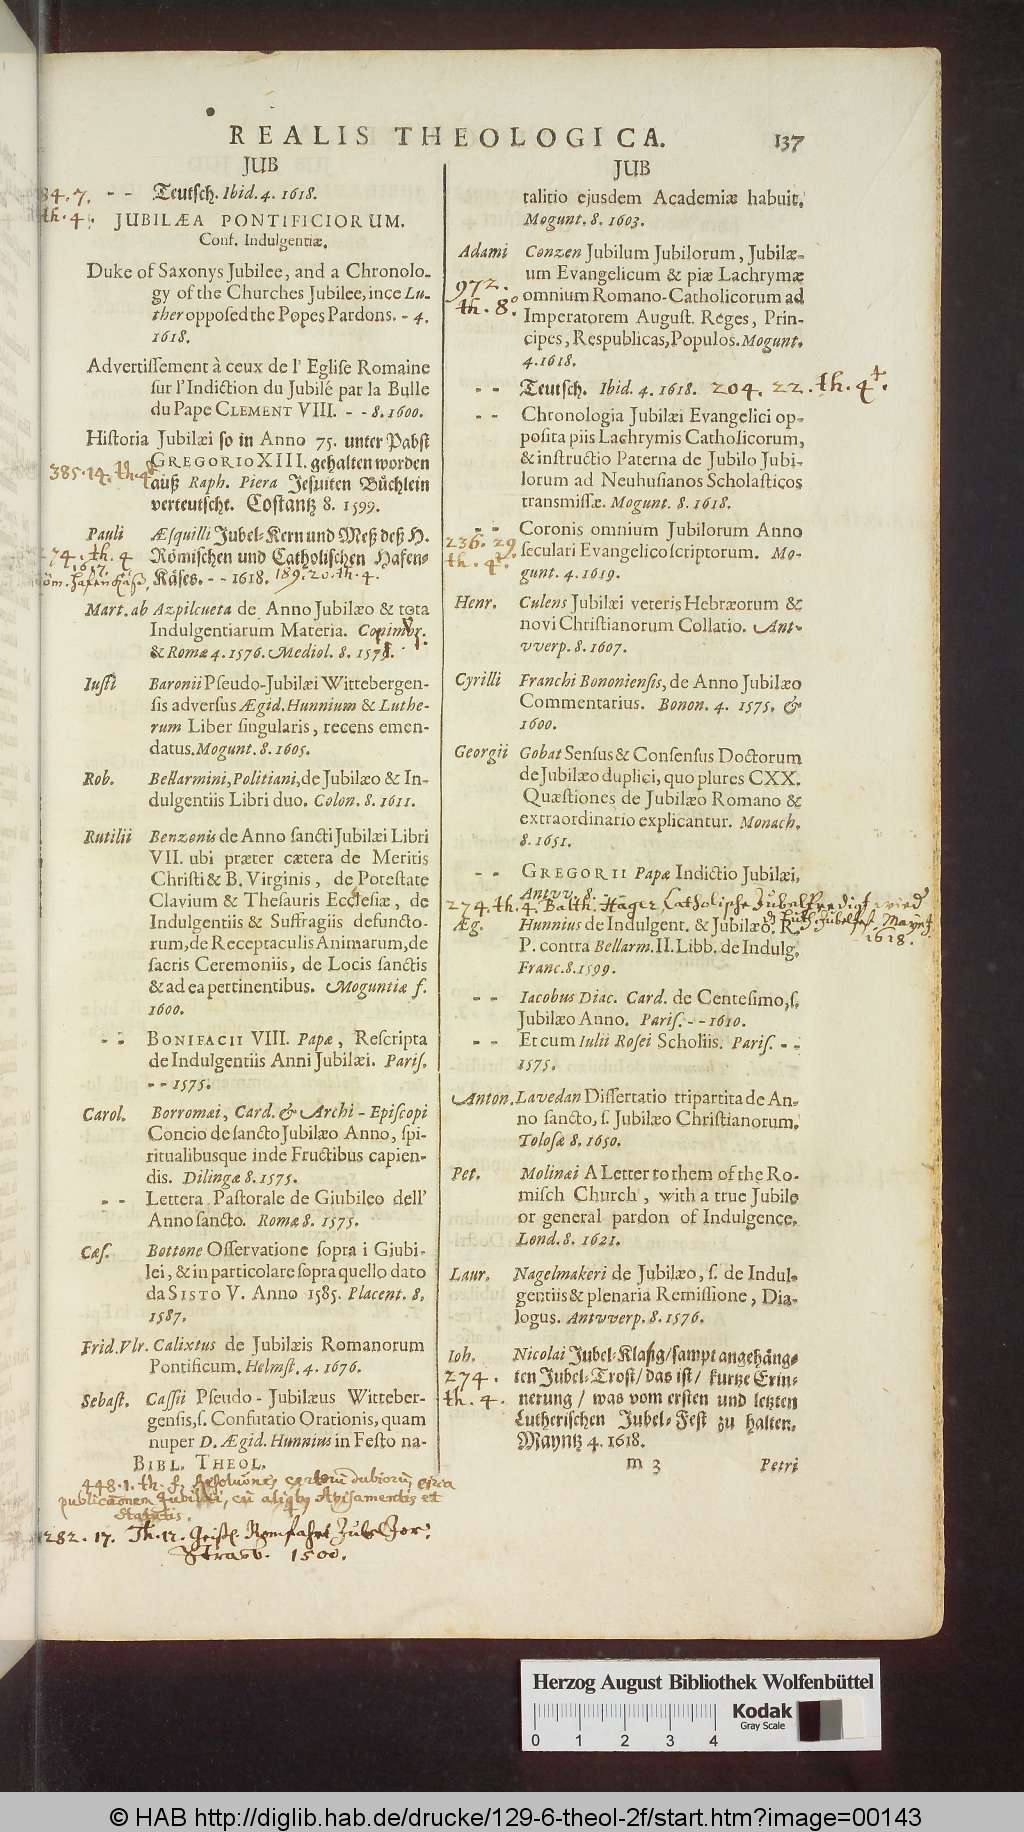 REALIS THEOLOGICA. 137
JUB
84. 7. - - Teutsch. Ibid. 4. 1618.
th. 4.
JUBILÆA PONTIFICIORUM.
Conf. Indulgentiæ.
Duke of Saxonys Jubilee, and a Chronolo-
gy of the Churches Jubilee, ince Lu-
ther opposed the Popes Pardons. - 4.
1618.
Advertissement à ceux de l' Eglise Romaine
sur l'Indiction du Jubilé par la Bulle
du Pape CLEMENT VIII. - - 8. 1600.
Historia Jubilæi so in Anno 75. unter Pabst
GREGORIO XIII. gehalten worden
385. 14. th. 4
auß Raph. Piera Jesuiten Büchlein
verteutscht. Costantz 8. 1599.
Pauli Æsquilli Jubel-Kern und Meß deß H.
Römischen und Catholischen Hafen-
Käses. - - 1618. 189. 20. th. 4.
74. th. 4
1617.
Mart. ab Azpilcueta de Anno Jubilæo & tota
Indulgentiarum Materia. Conimbr.
& Romæ 4. 1576. Mediol. 8. 1575.
Iusti Baronii Pseudo-Jubilæi Wittebergen-
sis adversus Ægid. Hunnium & Luthe-
rum Liber singularis, recens emen-
datus. Mogunt. 8. 1605.
Rob. Bellarmini, Politiani, de Jubilæo & In-
dulgentiis Libri duo. Colon. 8. 1611.
Rutilii Benzonii de Anno sancti Jubilæi Libri
VII. ubi præter cætera de Meritis
Christi & B. Virginis, de Potestate
Clavium & Thesauris Ecclesiæ, de
Indulgentiis & Suffragiis defuncto-
rum, de Receptaculis Animarum, de
sacris Ceremoniis, de Locis sanctis
& ad ea pertinentibus. Moguntiæ f.
1600.
- - BONIFACII VIII. Papæ, Rescripta
de Indulgentiis Anni Jubilæi. Paris.
- - 1575.
Carol. Borromæi, Card. & Archi-Episcopi
Concio de sancto Jubilæo Anno, spi-
ritualibusque inde Fructibus capien-
dis. Dilingæ 8. 1575.
- - Lettera Pastorale de Giubileo dell'
Anno sancto. Romæ 8. 1575.
Cæs. Bottone Osservatione sopra i Giubi-
lei, & in particolare sopra quello dato
da SISTO V. Anno 1585. Placent. 8.
1587.
Frid. Vlr. Calixtus de Jubilæis Romanorum
Pontificum. Helmst. 4. 1676.
Sebast. Cassii Pseudo-Jubilæus Witteber-
gensis, s. Confutatio Orationis, quam
nuper D. Ægid. Hunnius in Festo na-
BIBL. THEOL.
448. 1. th. f. Resolutiones certorū dubiorū circa
publicationem Jubilæi, cū aliqꝫ Avisamentis et
Statutis.
282. 17. Th. 12. Geistl. Romfahrt
Strasb. 1500.
JUB
talitio ejusdem Academiæ habuit.
Mogunt. 8. 1603.
Adami Conzen Jubilum Jubilorum, Jubilæ-
um Evangelicum & piæ Lachrymæ
972.
th. 8°
omnium Romano-Catholicorum ad
Imperatorem August. Reges, Prin-
cipes, Respublicas, Populos. Mogunt.
4. 1618.
- - Teutsch. Ibid. 4. 1618. 204. 22. th. 4.
- - Chronologia Jubilæi Evangelici op-
posita piis Lachrymis Catholicorum,
& instructio Paterna de Jubilo Jubi-
lorum ad Neuhusianos Scholasticos
transmissæ. Mogunt. 8. 1618.
- - Coronis omnium Jubilorum Anno
236. 29
th. 4.
seculari Evangelico scriptorum. Mo-
gunt. 4. 1619.
Henr. Culens Jubilæi veteris Hebræorum &
novi Christianorum Collatio. Ant-
vverp. 8. 1607.
Cyrilli Franchi Bononiensis, de Anno Jubilæo
Commentarius. Bonon. 4. 1575. &
1600.
Georgii Gobat Sensus & Consensus Doctorum
de Jubilæo duplici, quo plures CXX.
Quæstiones de Jubilæo Romano &
extraordinario explicantur. Monach.
8. 1651.
- - GREGORII Papæ Indictio Jubilæi.
Antvv. 8. -
274. th. 4. Balth. Hager Catholische Jubelpredigt wied
d Luth. Jubelfest. Mayntz
1618.
Æg. Hunnius de Indulgent. & Jubilæo. R.
P. contra Bellarm. II. Libb. de Indulg.
Franc. 8. 1599.
- - Iacobus Diac. Card. de Centesimo, s.
Jubilæo Anno. Paris. - - 1610.
- - Et cum Iulii Rosei Scholiis. Paris. - -
1575.
Anton. Lavedan Dissertatio tripartita de An-
no sancto, s. Jubilæo Christianorum.
Tolosæ 8. 1650.
Pet. Molinæi A Letter to them of the Ro-
misch Church, with a true Jubile
or general pardon of Indulgence.
Lond. 8. 1621.
Laur. Nagelmakeri de Jubilæo, s. de Indul-
gentiis & plenaria Remissione, Dia-
logus. Antvverp. 8. 1576.
Ioh. Nicolai Jubel-Klaßg/ sampt angehäng-
274.
th. 4.
ten Jubel-Trost/ das ist/ kurtze Erin-
nerung/ was vom ersten und letzten
Lutherischen Jubel-Fest zu halten.
Mayntz 4. 1618.
m 3 Petri
Herzog August Bibliothek Wolfenbüttel
Kodak
Gray Scale
0 1 2 3 4
© HAB http://diglib.hab.de/drucke/129-6-theol-2f/start.htm?image=00143